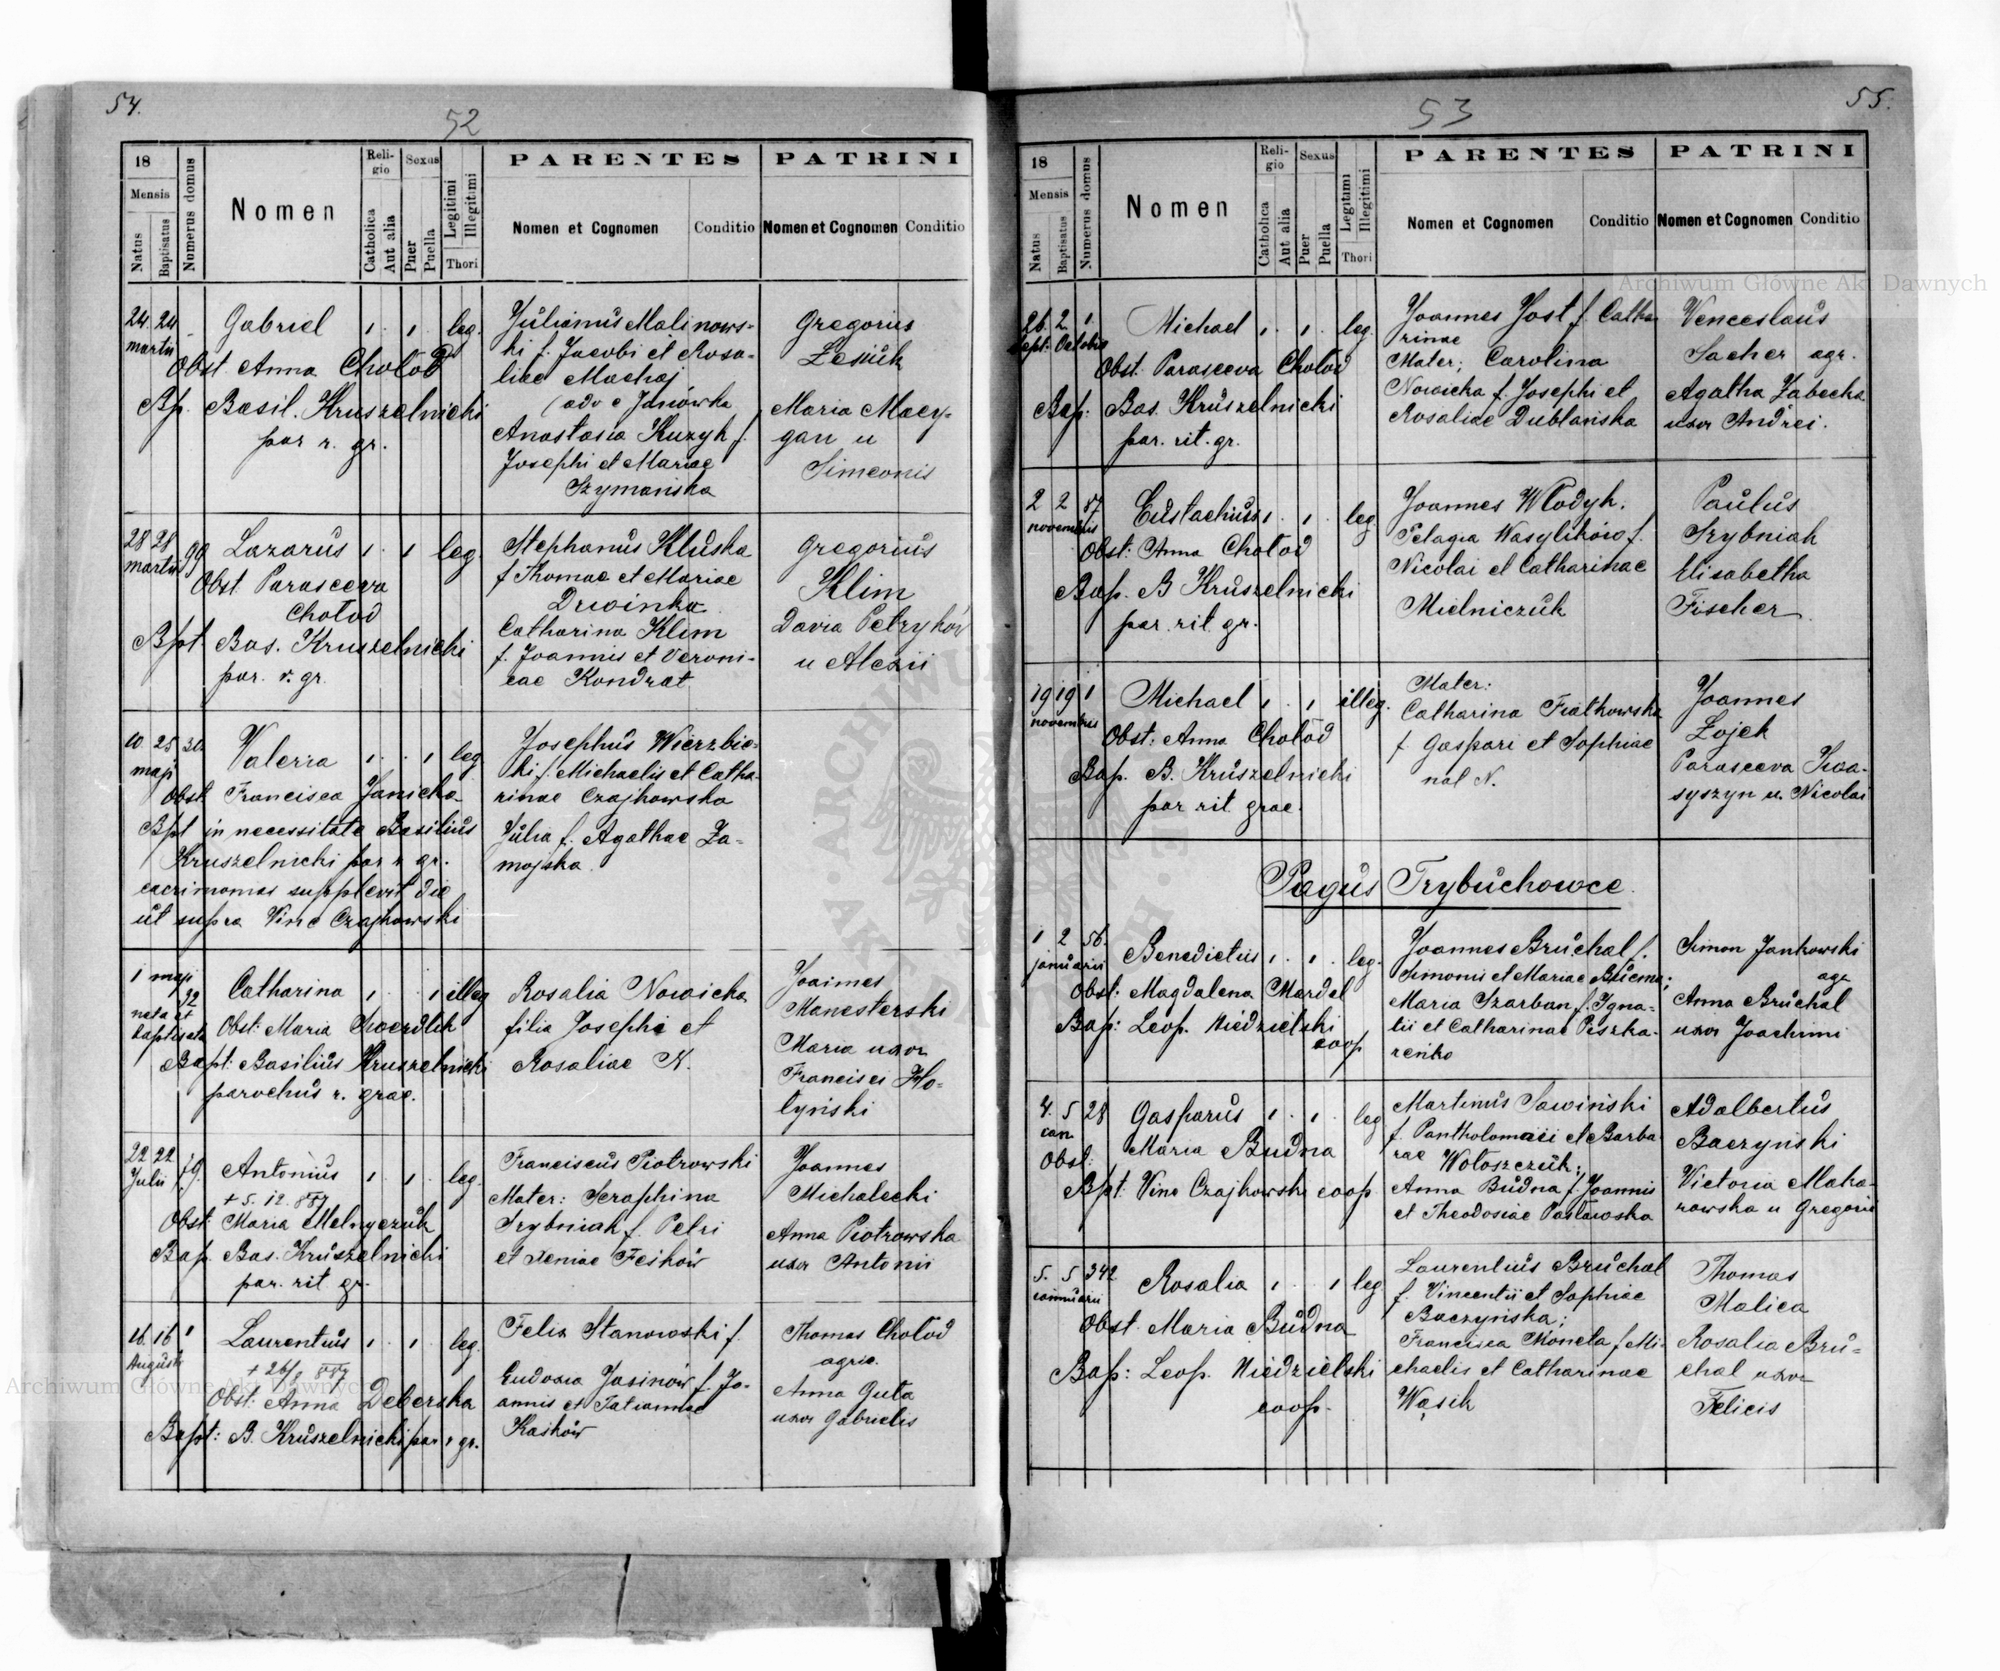 54.
52
18
Mensis
Natus
Baptisatus
Numerus domus
Nomen
Religio
Catholica
Aut alia
Sexus
Puer
Puella
Legitimi
Illegitimi
Thori
PARENTES
Nomen et Cognomen
Conditio
PATRINI
Nomen et Cognomen
Conditio
24 24 - Gabriel 1 . 1 . leg.
martii
Obst. Anna Chołod
Bp. Basil. Kruszelnicki
par r. gr.
Julianus Malinows-
ki f. Jacobi et Rosa-
liae Machaj
(adv e Janówka
Anastasia Kuzyk f.
Josephi et Mariae
Szymańska
Gregorius
Lesiuk
Maria Macy-
gan u
Simeonis
28 28 99 Lazarus 1 . 1 leg.
martii
Obst Parasceva
Chołod
Bpt. Bas. Kruszelnicki
par. r. gr.
Stephanus Kluska
f Thomae et Mariae
Drwinka
Catharina Klim
f. Joannis et Veroni-
cae Kondrat
Gregorius
Klim
Daria Petryków
u Alexii
10 25 30 Valeria 1 . . 1 leg
maji
Obst Francisca Janicka
Bpt in necessitate Basilius
Kruszelnicki par r gr.
cacrimomas supplevit die
ut supra Vinc Czajkowski
Josephus Wierzbic-
ki f. Michaelis et Catha-
rinae Czajkowska
Julia f. Agathae Za-
mojska
1 maji 72 Catharina 1 . . 1 illeg
nata et
baptisata
Obst: Maria Swerdlik
Bapt: Basilius Kruszelnicki
parochus r. grae.
Rosalia Nowicka
filia Josephi et
Rosaliae N.
Joannes
Manesterski
Maria uxor
Francisci Ho-
łyński
22 22 79. Antonius 1 . 1 . leg.
Julii
+ 5. 12. 887
Obst Maria Melnyczuk
Bap. Bas. Kruszelnicki
par. rit gr.
Franciscus Piotrowski
Mater: Seraphina
Trybniak f. Petri
et Xeniae Feśków
Joannes
Michalecki
Anna Piotrowska
uxor Antonii
16 16 1 Laurentius 1 . 1 . leg.
Augusti
+ 26/8 887
Obst: Anna Deberska
Bapt: B. Kruszelnicki par r gr.
Felix Stanowski f.
Eudoxia Jasinów f. Jo-
annis et Tatiannae
Kasków
Thomas Chołod
agric.
Anna Guta
uxor Gabrielis
55.
53
18
Mensis
Natus
Baptisatus
Numerus domus
Nomen
Religio
Catholica
Aut alia
Sexus
Puer
Puella
Legitimi
Illegitimi
Thori
PARENTES
Nomen et Cognomen
Conditio
PATRINI
Nomen et Cognomen
Conditio
26. 2 1. Michael 1 . 1 . leg
Sept. Octobris
Obst. Parasceva Chołod
Bap: Bas. Kruszelnicki
par. rit. gr.
Joannes Jost f. Catha
rinae
Mater; Carolina
Nowicka f. Josephi et
Rosaliae Dublańska
Venceslaus
Sacher agr.
Agatha Zabecka
uxor Andrei.
2 2 87 Eustachius 1 . 1 . leg.
novembris
Obst: Anna Chołod
Bap. B Kruszelnicki
par. rit. gr.
Joannes Włodyk.
Pelagia Wasylików f.
Nicolai et Catharinae
Mielniczuk
Paulus
Trybniak
Elisabetha
Fischer
19 19 1 Michael 1 . 1 illeg.
novembris
Obst: Anna Chołod
Bap. B. Kruszelnicki
par rit grae.
Mater:
Catharina Fiałkowska
f Gaspari et Sophiae
nat N.
Joannes
Łojek
Parasceva Iwa-
syszyn u. Nicolai
Pagus Trybuchowce
1 2 56. Benedictus 1 . 1 . leg.
januarii
Obst: Magdalena Mardel
Bap: Leop. Niedzielski
coop
Joannes Bruchal f.
Simonis et Mariae Kucma;
Maria Szarban f. Igna-
tii et Catharinae Piszka-
renko
Simon Jankowski
agr
Anna Bruchal
uxor Joachimi
4. 5 28 Gasparus 1 . 1 . leg
ian
Obst. Maria Budna
Bpt: Vinc Czajkowski coop
Martinus Sawiński
f. Pantholomaei et Barba
rae Wołoszczuk;
Anna Budna f. Joannis
et Theodosiae Pasławska
Adalbertus
Baczyński
Victoria Maka-
rowska u Gregorii
5. 5 342 Rosalia 1 . . 1 leg
iannuarii
Obst. Maria Budna
Bap: Leop. Niedzielski
coop.
Laurentius Bruchal
f. Vincentii et Sophiae
Baczyńska;
Francisca Moneta f Mi-
chaelis et Catharinae
Wąsik
Thomas
Malica
Rosalia Bru-
chal uxor
Felicis
Archiwum Główne Akt Dawnych
Archiwum Główne Akt Dawnych